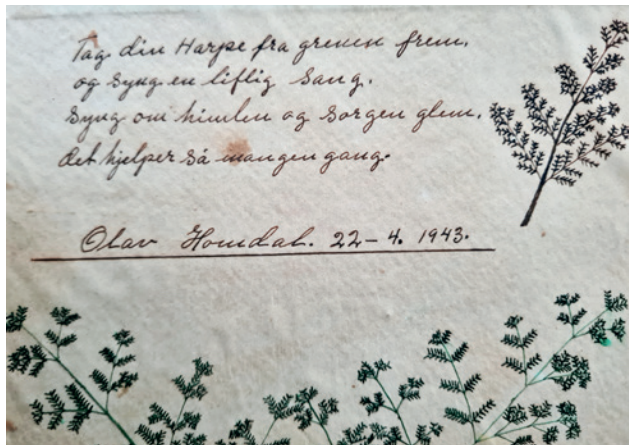 Tag din Harpe fra grenen frem,
og syng en liflig sang.
Syng om himlen og sorgen glem,
det hjelper så mangen gang.
Olav Homdal. 22-4. 1943.